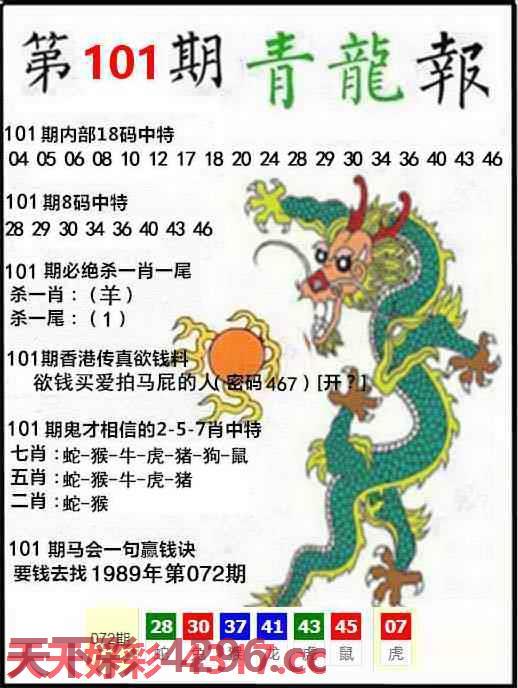 第101期 青龍報
101期内部18码中特
04 05 06 08 10 12 17 18 20 24 28 29 30 34 36 40 43 46
101期8码中特
28 29 30 34 36 40 43 46
101期必绝杀一肖一尾
杀一肖:(羊)
杀一尾:(1)
101期香港传真欲钱料
欲钱买爱拍马屁的人(密码467)[开?]
101期鬼才相信的2-5-7肖中特
七肖:蛇-猴-牛-虎-猪-狗-鼠
五肖:蛇-猴-牛-虎-猪
二肖:蛇-猴
101期马会一句赢钱诀
要钱去找1989年第072期
072期 28 30 37 41 43 45 07
蛇 猴 龙 虎 鼠 虎
天下好彩4296.cc